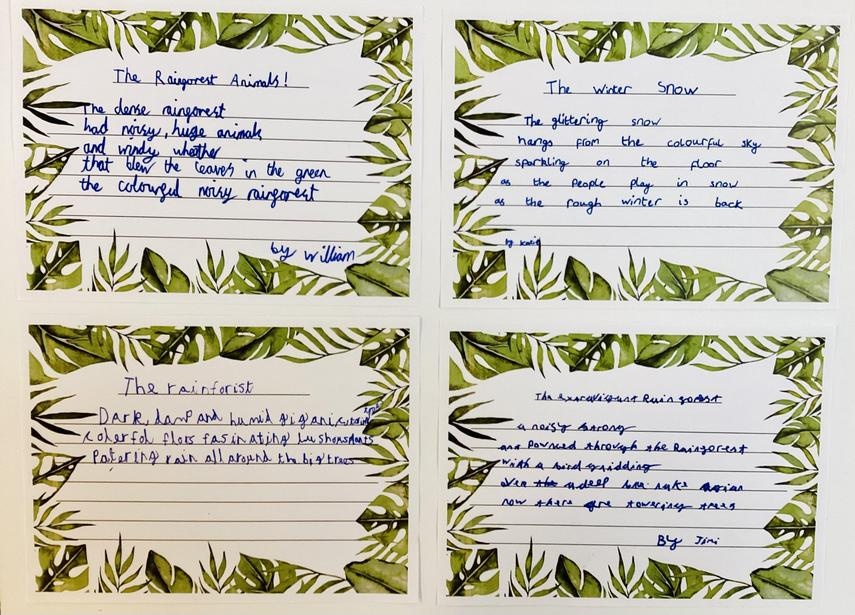 The Rainforest Animals!
The dense rainforest
had noisy, huge animals
and windy whether
that blew the leaves in the green
the colourful noisy rainforest
by William
The Winter Snow
The glittering snow
hangs from the colourful sky
sparkling on the floor
as the people play in snow
as the rough winter is back
by
The rainforist
Dark, damp and humid
colorful flors fasinating lushous plants
Patering rain all around the big trees
The Rain forest
a noisy
and Pounced through the Rainforest
with a bird
over a deep
now there are towering trees
By